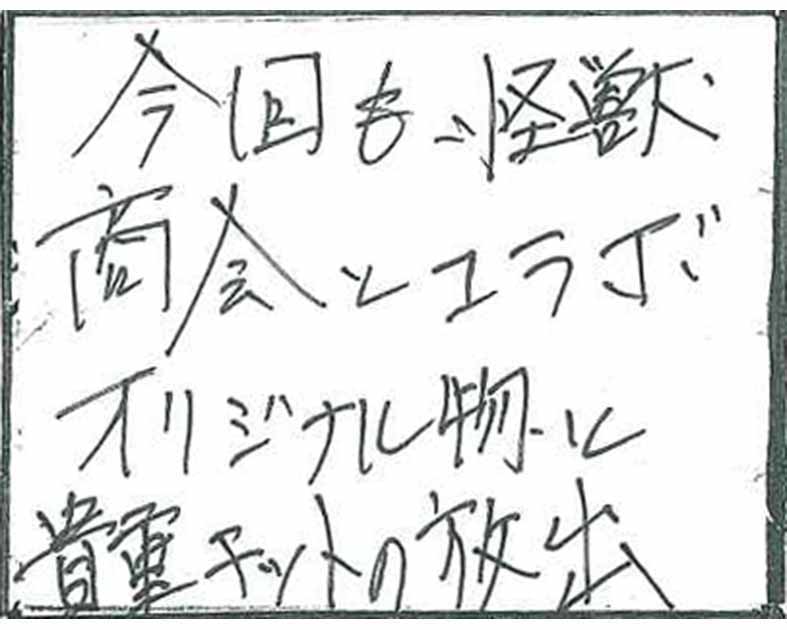 今回も、怪獣
商会とコラボ
オリジナル物と
貴重キットの放出